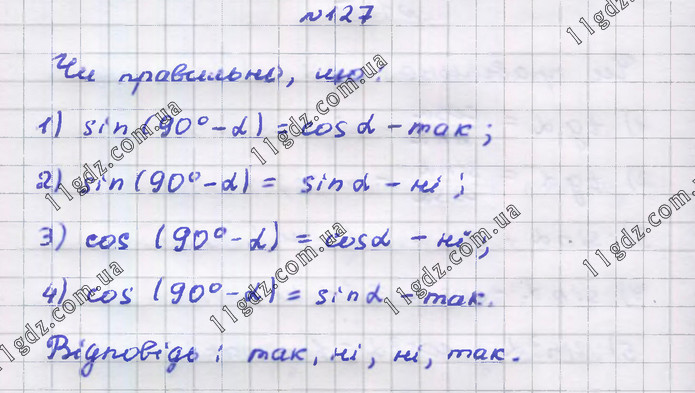 №127
Чи правильні, що:
1) sin (90° - α) = cos α - так;
2) sin (90° - α) = sin α - ні;
3) cos (90° - α) = cos α - ні;
4) cos (90° - α) = sin α - так.
Відповідь: так, ні, ні, так.
11gdz.com.ua
11gdz.com.ua
11gdz.com.ua
11gdz.com.ua
11gdz.com.ua
11gdz.com.ua
11gdz.com.ua
11gdz.com.ua